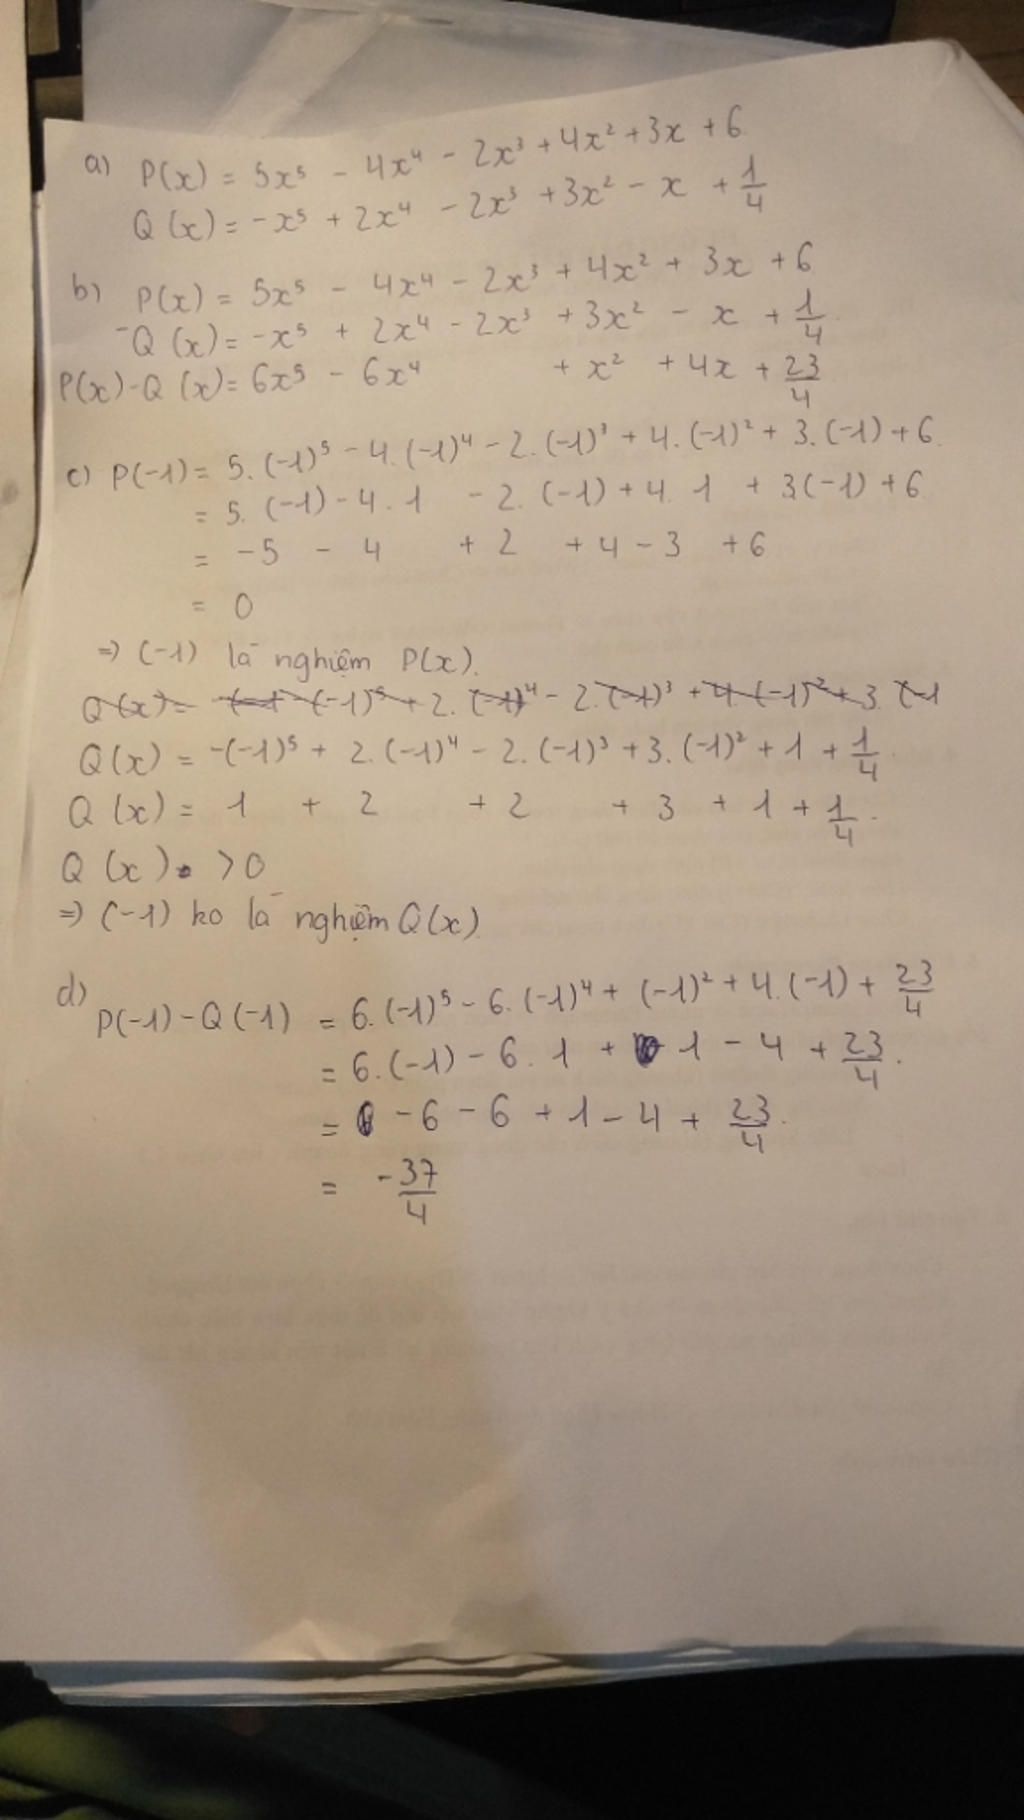 a) P(x) = 5x⁵ - 4x⁴ - 2x³ + 4x² + 3x + 6
Q(x) = -x⁵ + 2x⁴ - 2x³ + 3x² - x + 1/4
b) P(x) = 5x⁵ - 4x⁴ - 2x³ + 4x² + 3x + 6
- Q(x) = -x⁵ + 2x⁴ - 2x³ + 3x² - x + 1/4
P(x)-Q(x) = 6x⁵ - 6x⁴ + x² + 4x + 23/4
c) P(-1) = 5.(-1)⁵ - 4.(-1)⁴ - 2.(-1)³ + 4.(-1)² + 3.(-1) + 6
= 5.(-1) - 4.1 - 2.(-1) + 4.1 + 3(-1) + 6
= -5 - 4 + 2 + 4 - 3 + 6
= 0
=> (-1) là nghiệm P(x).
Q(x) = (-1)⁵ + 2.(-1)⁴ - 2.(-1)³ + 4.(-1)² + 3.(-1
Q(x) = -(-1)⁵ + 2.(-1)⁴ - 2.(-1)³ + 3.(-1)² + 1 + 1/4
Q(x) = 1 + 2 + 2 + 3 + 1 + 1/4.
Q(x) > 0
=> (-1) ko là nghiệm Q(x)
d) P(-1) - Q(-1) = 6.(-1)⁵ - 6.(-1)⁴ + (-1)² + 4.(-1) + 23/4
= 6.(-1) - 6.1 + 1 - 4 + 23/4.
= -6 - 6 + 1 - 4 + 23/4.
= -37/4